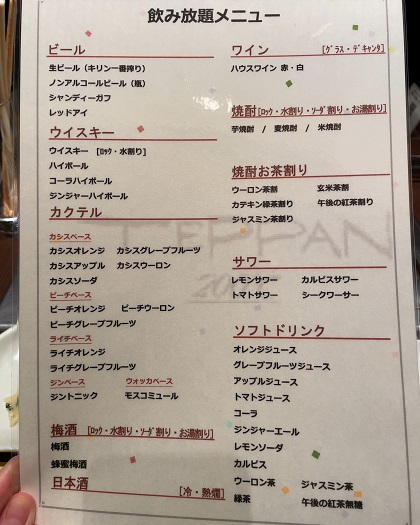 飲み放題メニュー
ビール
生ビール（キリン一番搾り）
ノンアルコールビール（瓶）
シャンディーガフ
レッドアイ
ウイスキー
ウイスキー [ロック・水割り]
ハイボール
コーラハイボール
ジンジャーハイボール
カクテル
カシスベース
カシスオレンジ カシスグレープフルーツ
カシスアップル カシスウーロン
カシスソーダ
ピーチベース
ピーチオレンジ ピーチウーロン
ピーチグレープフルーツ
ライチベース
ライチオレンジ
ライチグレープフルーツ
ジンベース ウォッカベース
ジントニック モスコミュール
梅酒 [ロック・水割り・ソーダ割り・お湯割り]
梅酒
蜂蜜梅酒
日本酒 [冷・熱燗]
ワイン [グラス・デキャンタ]
ハウスワイン 赤・白
焼酎 [ロック・水割り・ソーダ割り・お湯割り]
芋焼酎 / 麦焼酎 / 米焼酎
焼酎お茶割り
ウーロン茶割 玄米茶割
カテキン緑茶割り 午後の紅茶割り
ジャスミン茶割り
サワー
レモンサワー カルピスサワー
トマトサワー シークワーサー
ソフトドリンク
オレンジジュース
グレープフルーツジュース
アップルジュース
トマトジュース
コーラ
ジンジャーエール
レモンソーダ
カルピス
ウーロン茶 ジャスミン茶
緑茶 午後の紅茶無糖
TEPPAN